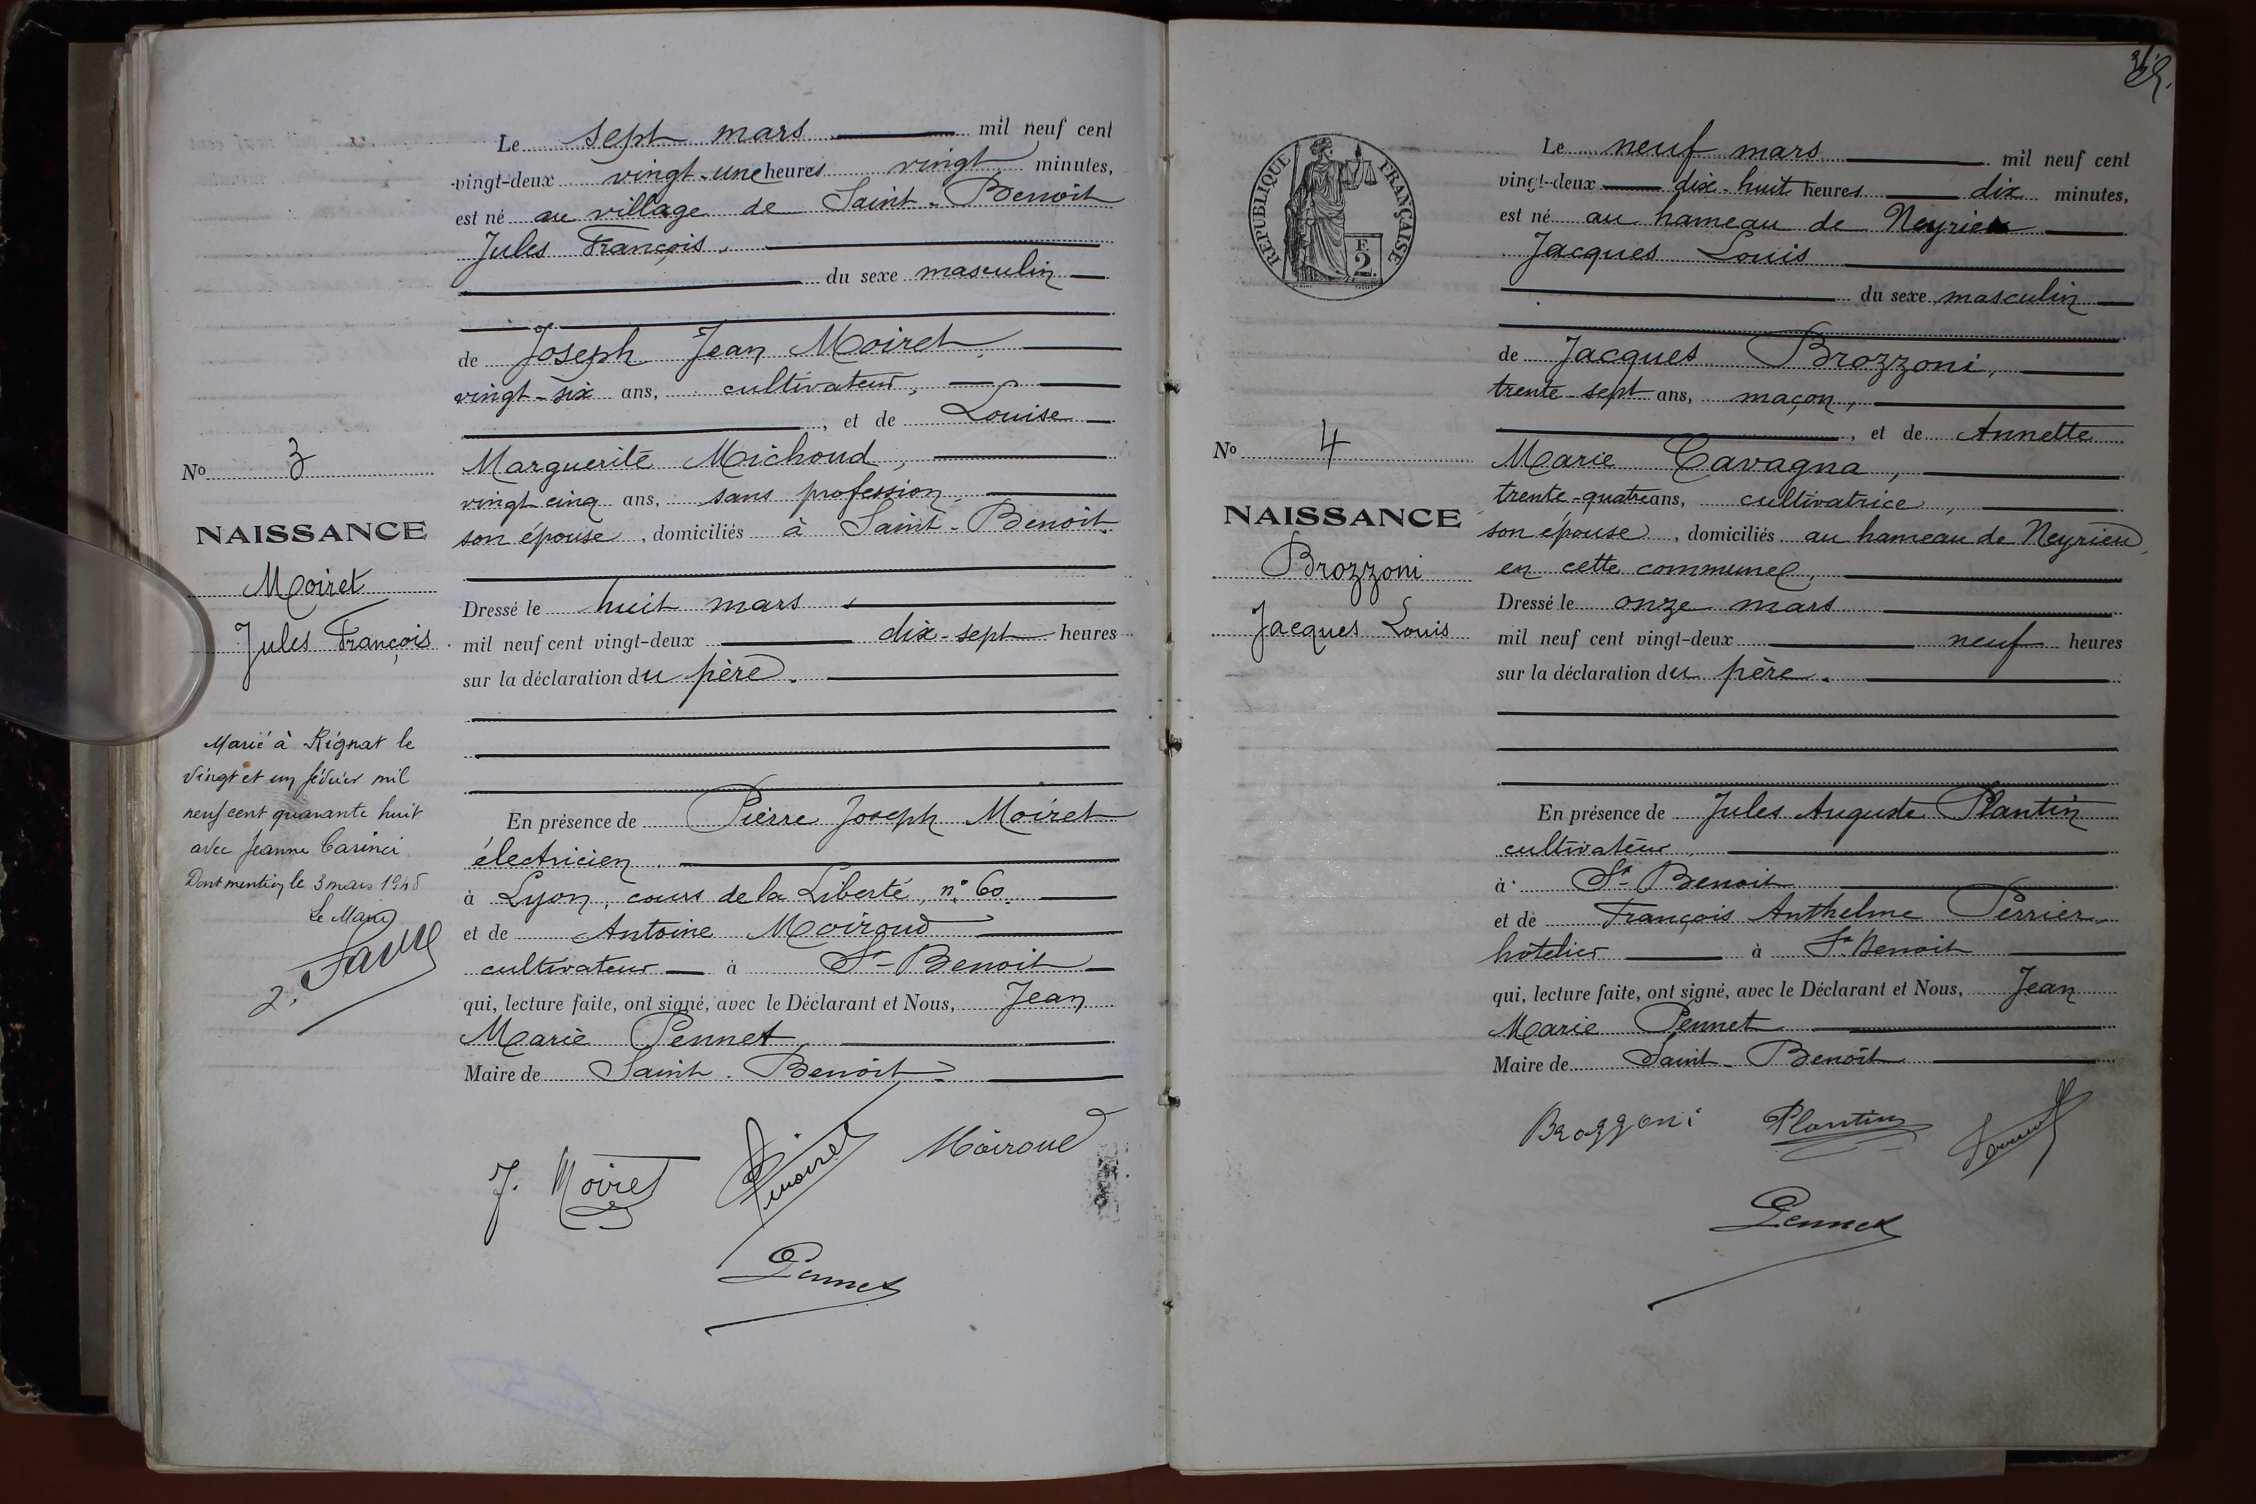 Le sept mars mil neuf cent
vingt-deux vingt-une heures vingt minutes,
est né au village de Saint-Benoît
Jules François.
du sexe masculin
de Joseph Jean Moiret,
vingt-six ans, cultivateur,
, et de Louise
Marguerite Michoud,
vingt cinq ans, sans profession,
son épouse, domiciliés à Saint-Benoit.
Dressé le huit mars
mil neuf cent vingt-deux dix-sept heures
sur la déclaration du père.
En présence de Pierre Joseph Moiret
électricien
à Lyon, cours de la Liberté, n° 60
et de Antoine Moiroud
cultivateur à St-Benoit
qui, lecture faite, ont signé, avec le Déclarant et Nous, Jean
Marie Pennet
Maire de Saint-Benoit
J. Moiret
Moiret
Moiroud
Pennet
No 3
NAISSANCE
Moiret
Jules François
Marié à Rignat le
vingt et un février mil
neuf cent quarante huit
avec Jeanne Carinci
Dont mention le 3 mars 1948
Le Maire
2.
RÉPUBLIQUE FRANÇAISE
F.
2.
Le neuf mars mil neuf cent
vingt-deux dix-huit heures dix minutes,
est né au hameau de Neyrieu
Jacques Louis
du sexe masculin
de Jacques Brozzoni,
trente-sept ans, maçon,
, et de Annette
Marie Cavagna,
trente-quatre ans, cultivatrice,
son épouse, domiciliés au hameau de Neyrieu,
en cette commune,
Dressé le onze mars
mil neuf cent vingt-deux neuf heures
sur la déclaration du père.
En présence de Jules Auguste Plantin
cultivateur
à St-Benoit
et de François Anthelme Perrier
hôtelier à St-Benoit
qui, lecture faite, ont signé, avec le Déclarant et Nous, Jean
Marie Pennet
Maire de Saint-Benoît
Brozzoni
Plantin
Pennet
No 4
NAISSANCE
Brozzoni
Jacques Louis